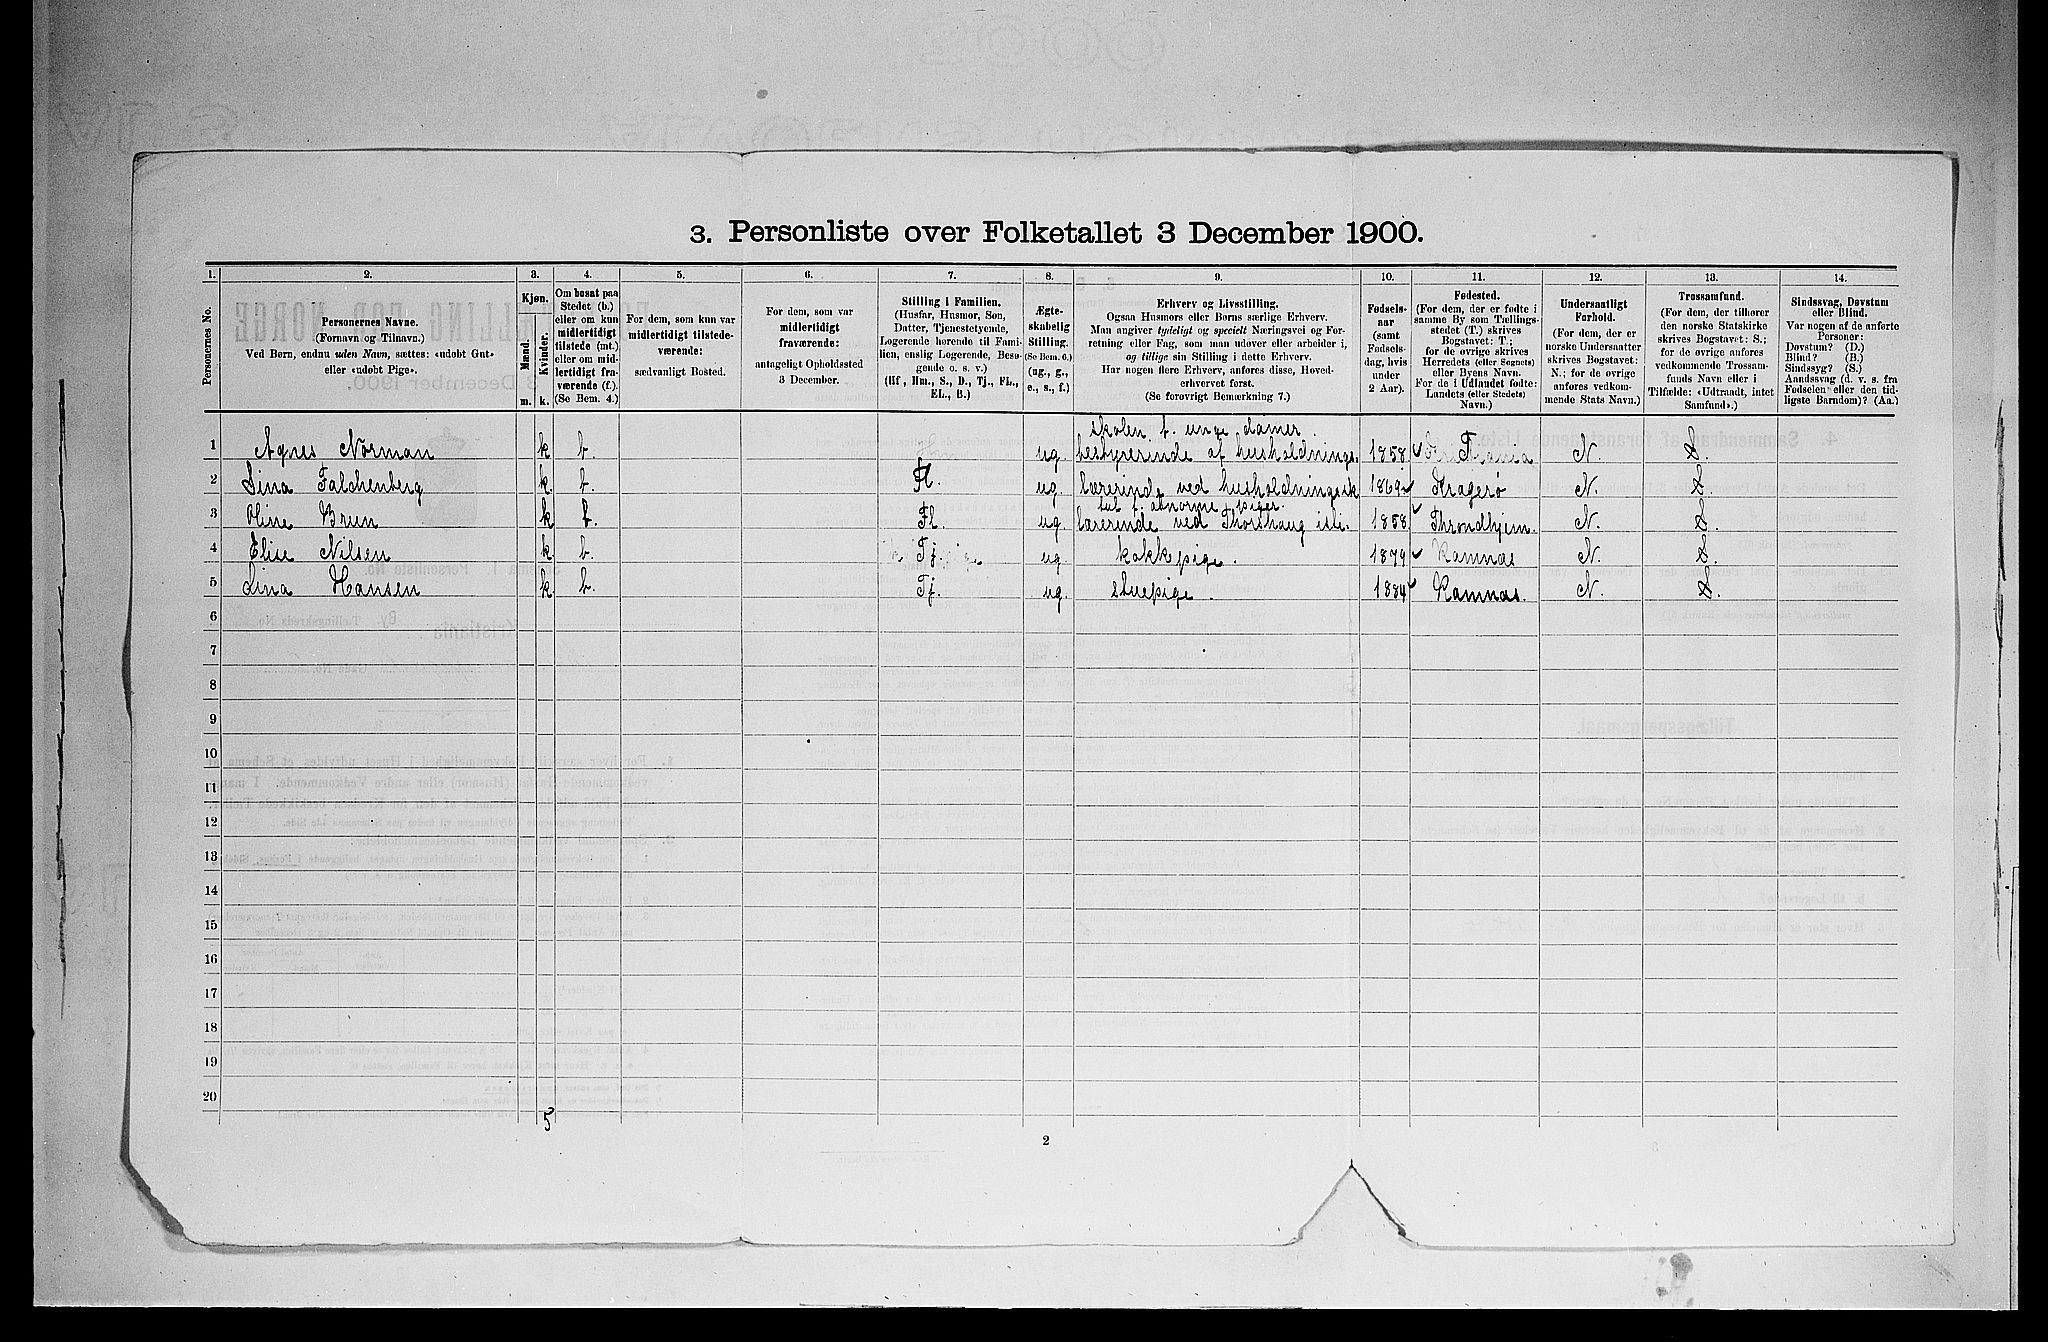 3. Personliste over Folketallet 3 December 1900.
1. 2. 3. 4. 5. 6. 7. 8. 9. 10. 11. 12. 13. 14.
Personernes No.
Personernes Navne.
(Fornavn og Tilnavn.)
Ved Børn, endnu uden Navn, sættes: «udøbt Gut»
eller «udøbt Pige».
Kjøn.
Mænd.
Kvinder.
m. k.
Om bosat paa
Stedet (b.)
eller om kun
midlertidigt
tilstede (mt.)
eller om mid-
lertidigt fra-
værende (f.).
(Se Bem. 4.)
For dem, som kun var
midlertidigt tilstede-
værende:
sædvanligt Bosted.
For dem, som var
midlertidigt
fraværende:
antageligt Opholdssted
3 December.
Stilling i Familien.
(Husfar, Husmor, Søn,
Datter, Tjenestetyende,
Logerende hørende til Fami-
lien, enslig Logerende, Besø-
gende o. s. v.)
(Hf, Hm., S., D., Tj., FL.,
EL., B.)
Ægte-
skabelig
Stilling.
(Se Bem. 6.)
(ug., g.,
e., s., f.)
Erhverv og Livsstilling.
Ogsaa Husmors eller Børns særlige Erhverv.
Man angiver tydeligt og specielt Næringsvei og For-
retning eller Fag, som man udøver eller arbeider i,
og tillige sin Stilling i dette Erhverv.
Har nogen flere Erhverv, anføres disse, Hoved-
erhvervet først.
(Se forøvrigt Bemærkning 7.)
Fødsels-
aar
(samt
Fødsels-
dag, hvis
under
2 Aar).
Fødested.
(For dem, der er fødte i
samme By som Tællings-
stedet (T.) skrives
Bogstavet: T.;
for de øvrige skrives
Herredets (eller Sognets)
eller Byens Navn.
For de i Udlandet fødte:
Landets (eller Stedets)
Navn.)
Undersaatligt
Forhold.
(For dem, der er
norske Undersaatter
skrives Bogstavet:
N.; for de øvrige
anføres vedkom-
mende Stats Navn.)
Trossamfund.
(For dem, der tilhører
den norske Statskirke
skrives Bogstavet: S.;
for de øvrige anføres
vedkommende Trossam-
funds Navn eller i
Tilfælde: «Udtraadt, intet
Samfund».)
Sindssvag, Døvstum
eller Blind.
Var nogen af de anførte
Personer:
Døvstum? (D.)
Blind? (B.)
Sindssyg? (S.)
Aandssvag (d. v. s. fra
Fødselen eller den tid-
ligste Barndom)? (Aa.)
skolen f. unge damer
1 Agnes Norman k b. ug. bestyrerinde af husholdnings. 1858 T N. S.
2 Lina Falchenberg k. b. Fl. ug. lærerinde ved husholdningssk 1869 Kragerø N. S.
tut f. abnorme piger.
3 Oline Brun k b. Fl. ug. lærerinde ved Thorshaug isti. 1858 Throndhjem. N. S.
4 Elise Nilsen k b. Tj. ug. kokkepige. 1879 Ramnæs N. S.
5 Lina Hansen k. b. Tj. ug. stuepige. 1884 Ramnæs. N. S.
6
7
8
9
10
11
12
13
14
15
16
17
18
19
20
5
2